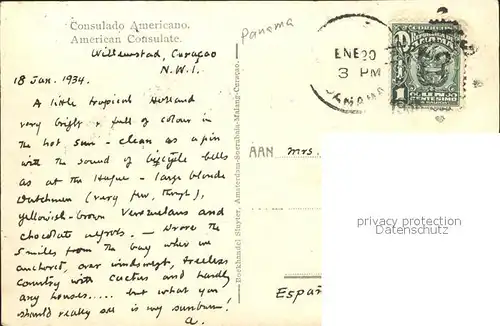 Consulado Americano.
American Consulate.
Willemstad, Curaçao
N.W.I.
18 Jan. 1934.
A little tropical Holland
very bright & full of colour in
the hot sun - clean as a pin
with the sound of bicycle bells
as at the Hague - large blonde
Dutchmen (very few, though),
yellowish-brown Venezuelans and
chocolate negroes. - Drove the
5 miles from the bay where we
anchored, over windswept, treeless
country with cactus and hardly
any houses..... but what you
should really see is my sunburn!
a.
Boekhandel Sluyter, Amsterdam-Soerabaia-Malang-Curaçao.
Panama
ENE 20
3 PM
PANAMA
AAN Mrs.
Españ
PROHIBIDO COPYRIGHT
por oldthing.de